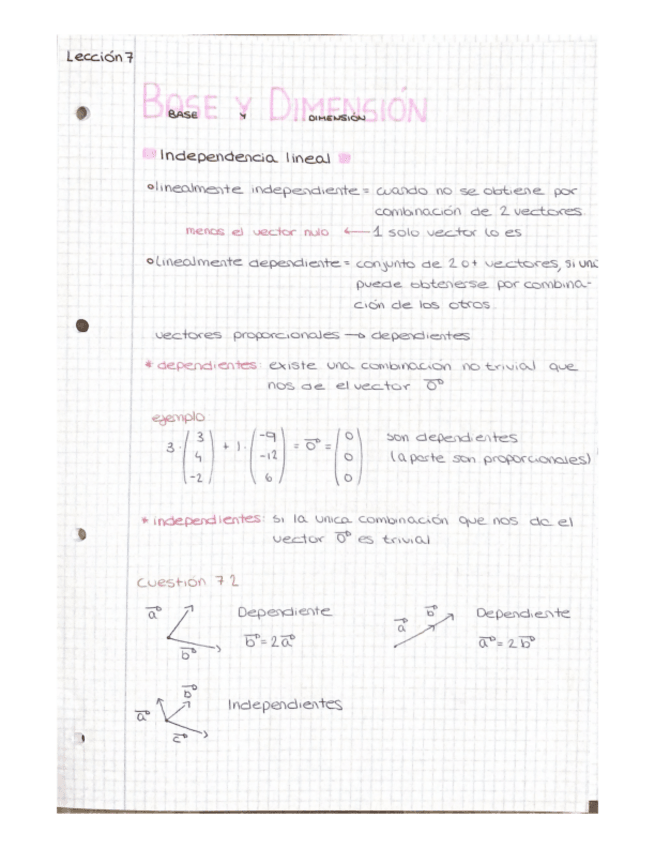 Lección 7
BASE Y DIMENSIÓN
BASE Y DIMENSIÓN
Independencia lineal
linealmente independiente = cuando no se obtiene por
combinación de 2 vectores
menos el vector nulo ← 1 solo vector lo es
linealmente dependiente = conjunto de 2 o + vectores, si uno
puede obtenerse por combina-
ción de los otros.
vectores proporcionales → dependientes
* dependientes: existe una combinación no trivial que
nos de el vector 0⃗
ejemplo
3 · (3 4 -2) + 1 · (-9 -12 6) = 0⃗ = (0 0 0) son dependientes
(aparte son proporcionales)
* independientes: si la unica combinación que nos da el
vector 0⃗ es trivial
Cuestión 7 2
a⃗ b⃗ Dependiente
b⃗ = 2a⃗
a⃗ b⃗ Dependiente
a⃗ = 2b⃗
a⃗ b⃗ c⃗ Independientes